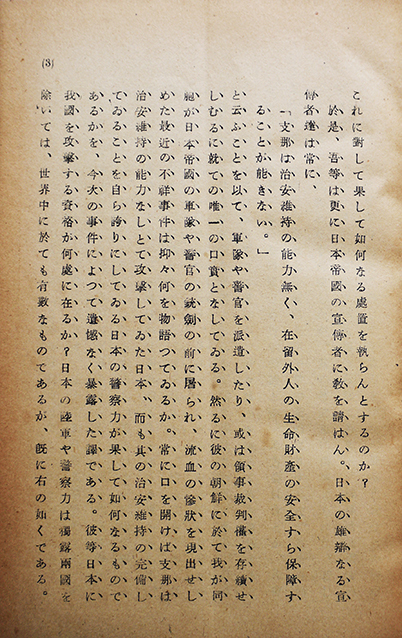 これに對して果して如何なる處置を執らんとするのか？
於是、吾等は更に日本帝國の宣傳者に敎を請はん。日本の雄辯なる宣
傳者達は常に、
「支那は治安維持の能力無く、在留外人の生命財產の安全すら保障す
ることが能きない。」
と云ふことを以て、軍隊や警官を派遣したり、或は領事裁判權を存續せ
しむるに就ての唯一の口實となしてゐる。然るに彼の朝鮮に於て我が同
胞が日本帝國の軍隊や警官の銃劍の前に屠られ、流血の慘狀を現出せし
めた最近の不祥事件は抑々何を物語つてゐるか。常に口を開けば支那は
治安維持の能力なしとて攻擊してゐた日本、而も其の治安維持の完備し
てゐることを自ら誇りにしてゐる日本の警察力が果して如何なるもので
あるかを、今次の事件によつて遺憾なく暴露した譯である。彼等日本に
我國を攻擊する資格が何處に在るか？日本の陸軍や警察力は獨露兩國を
除いては、世界中に於ても有數なものであるが、旣に右の如くである。
(3)